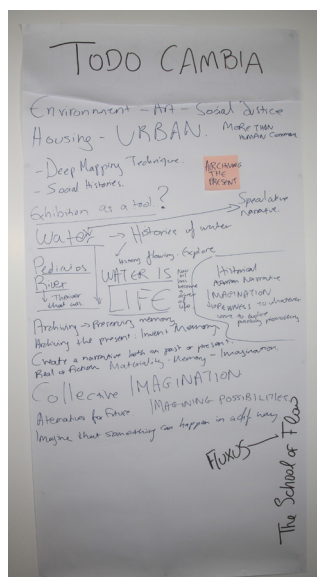 TODO CAMBIA
Environment - Art - Social Justice
Housing - URBAN. MORE THAN
HUMAN Commons
- Deep Mapping Technique.
- Social Histories.
ARCHIVING
THE
PRESENT
Exhibition as a tool?
Speculative
narrative.
Water → Histories of water
History flowing. Explore
Pedieios
River
WATER IS
LIFE
Historical
Narrative
IMAGINATION
Archiving → Preserving memory
Archiving the present. Invent Memory
Create a narrative both on past or present.
Real or fiction Materiality - Memory - Imagination
Collective IMAGINATION
Alternatives for Future. IMAGINING POSSIBILITIES
Imagine that something can happen in a diff way
FLUXUS
The School of Flow